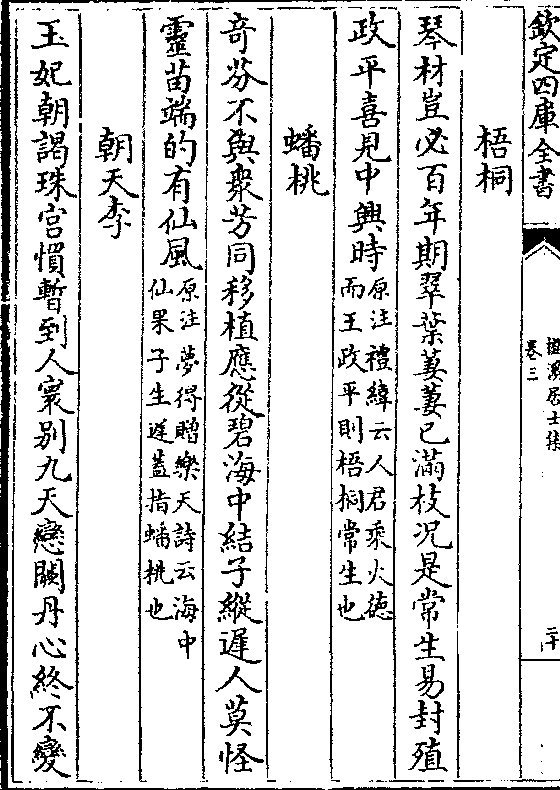 欽定四庫全書
檆溪居士集
卷三
二十
梧桐
琴材豈必百年期翠葉萋萋已滿枝况是常生易封殖
政平喜見中興時原注禮緯云人君乘火徳
而王政平則梧桐常生也
蟠桃
竒芬不與衆芳同移植應從碧海中結子縱遲人莫怪
靈苗端的有仙風原注夢得贈樂天詩云海中
仙果子生遲蓋指蟠桃也
朝天李
玉妃朝謁珠宫慣暫到人寰别九天戀闕丹心終不變